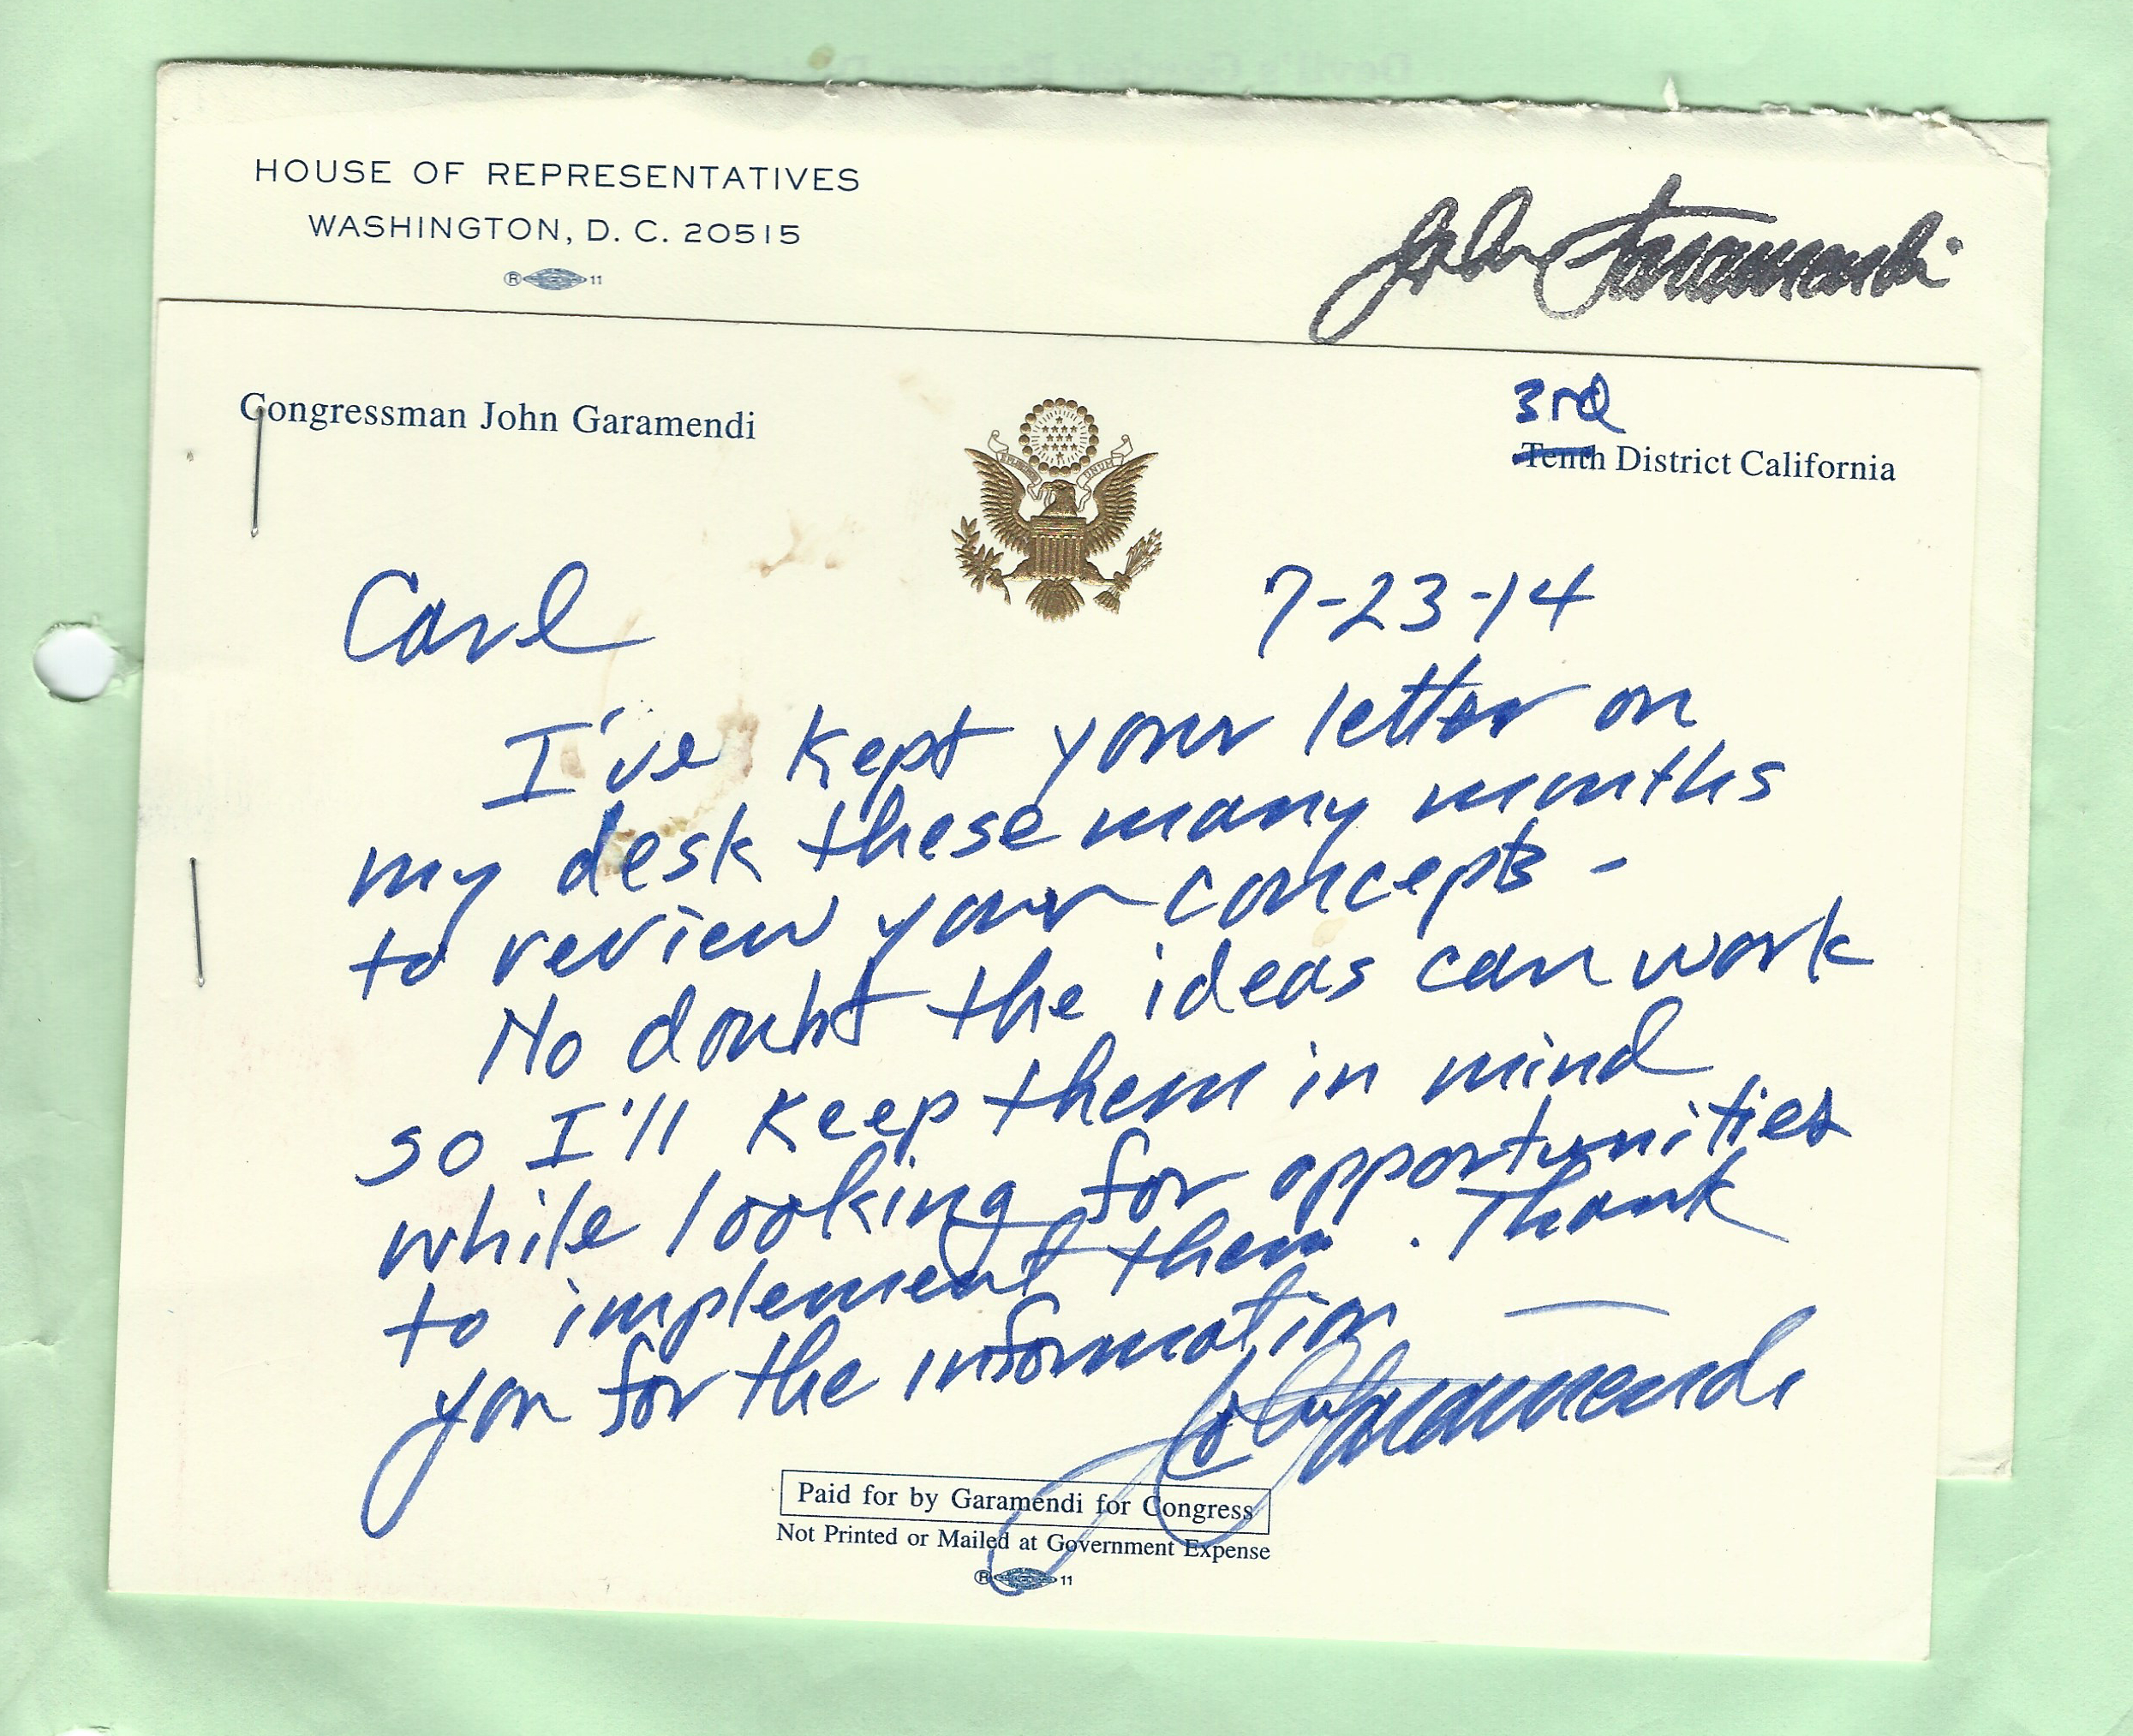 HOUSE OF REPRESENTATIVES
WASHINGTON, D. C. 20515
® 11
John Garamendi
Congressman John Garamendi
3rd
Tenth District California
Carl 7-23-14
I've kept your letter on
my desk these many months
to review your concepts -
No doubt the ideas can work
so I'll keep them in mind
while looking for opportunities
to implement them. Thank
you for the information
John Garamendi
Paid for by Garamendi for Congress
Not Printed or Mailed at Government Expense
® 11